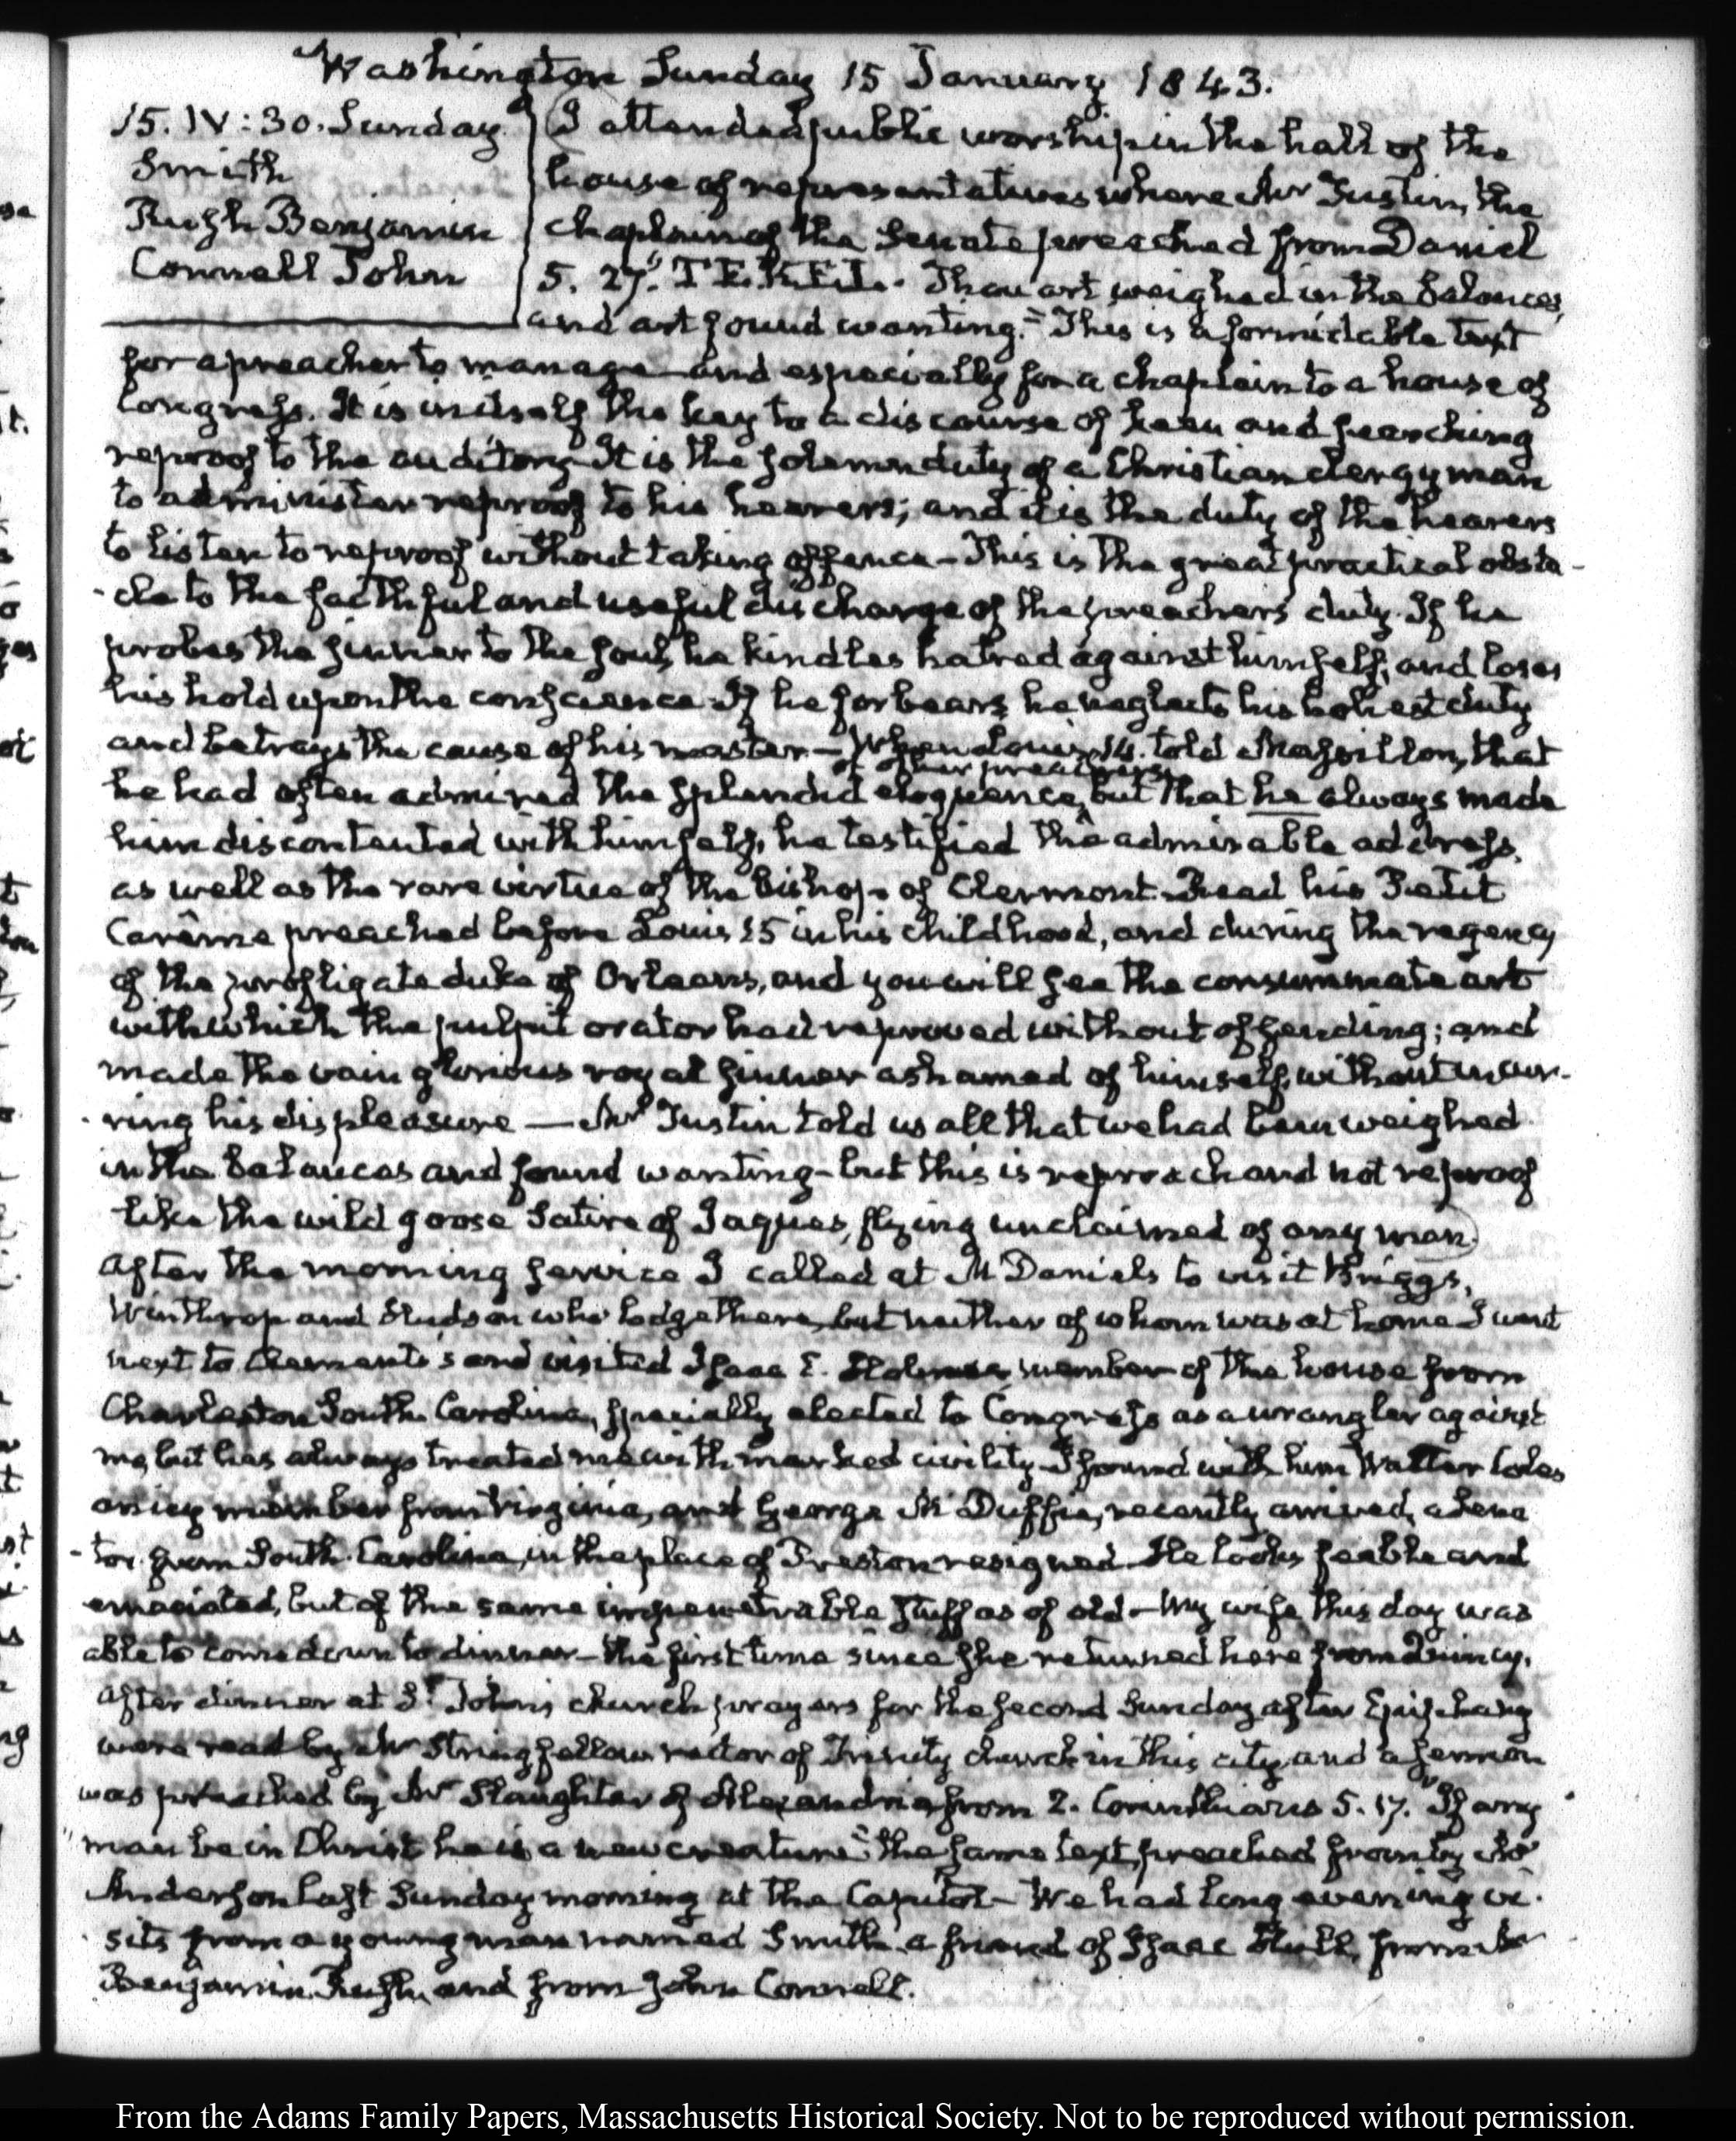 Washington Sunday 15 January 1843.
15. IV:30. Sunday
Smith
Rush Benjamin
Connell John
I attended public worship in the hall of the
house of representatives where Mr Tustin, the
chaplain of the Senate preached from Daniel
5. 27. "TEKEL. Thou art weighed in the balances,
and art found wanting." This is a formidable text
for a preacher to manage—and especially for a chaplain to a house of
Congress. It is in itself the key to a discourse of keen and searching
reproof to the auditory—It is the solemn duty of a Christian clergyman
to administer reproof to his hearers; and it is the duty of the hearers
to listen to reproof without taking offence—This is the great practical obsta-
-cle to the faithful and useful discharge of the preachers duty. If he
probes the sinner to the soul, he kindles hatred against himself, and loses
his hold upon the conscience—If he forbears he neglects his holiest duty
and betrays the cause of his master—When Louis 14. told Massillon, that
of other preachers
he had often admired the splendid eloquence, but that he always made
him discontented with himself, he testified the admirable address,
as well as the rare virtue of the bishop of Clermont. Read his Petit
Carême preached before Louis 15 in his childhood, and during the regency
of the profligate duke of Orleans, and you will see the consummate art
with which the pulpit orator had reproved without offending; and
made the vain glorious royal sinner ashamed of himself, without incur-
-ring his displeasure—Mr Tustin told us all that we had been weighed
in the balances and found wanting—but this is reproach and not reproof
like the wild goose Satire of Jaques, flying unclaimed of any man.)
After the morning service I called at McDaniels to visit Briggs,
Winthrop and Hudson who lodge there, but neither of whom was at home I went
next to Clements's and visited Isaac E. Holmes, member of the house from
Charleston South Carolina, specially elected to Congress as a wrangler against
me, but has always treated me with marked civility. I found with him Walter Coles
a member from Virginia, and George McDuffie, recently arrived, a Sena
-tor from South Carolina, in the place of Preston resigned. He looks feeble and
emaciated, but of the same impenetrable stuff as of old—My wife this day was
able to come down to dinner—the first time since she returned here from Quincy.
After dinner at St. John's church prayers for the second Sunday after Epiphany
were read by Mr Stringfellow rector of Trinity church in this city, and a sermon
was preached by Mr Slaughter of Alexandria from 2. Corinthians 5. 17. "If any
"man be in Christ he is a new creature" the same text preached from by Mr
Anderson last Sunday morning at the Capitol—We had long evening vi-
-sits from a young man named Smith, a friend of Isaac Hull, from Mr
Benjamin Rush, and from John Connell.
From the Adams Family Papers, Massachusetts Historical Society. Not to be reproduced without permission.